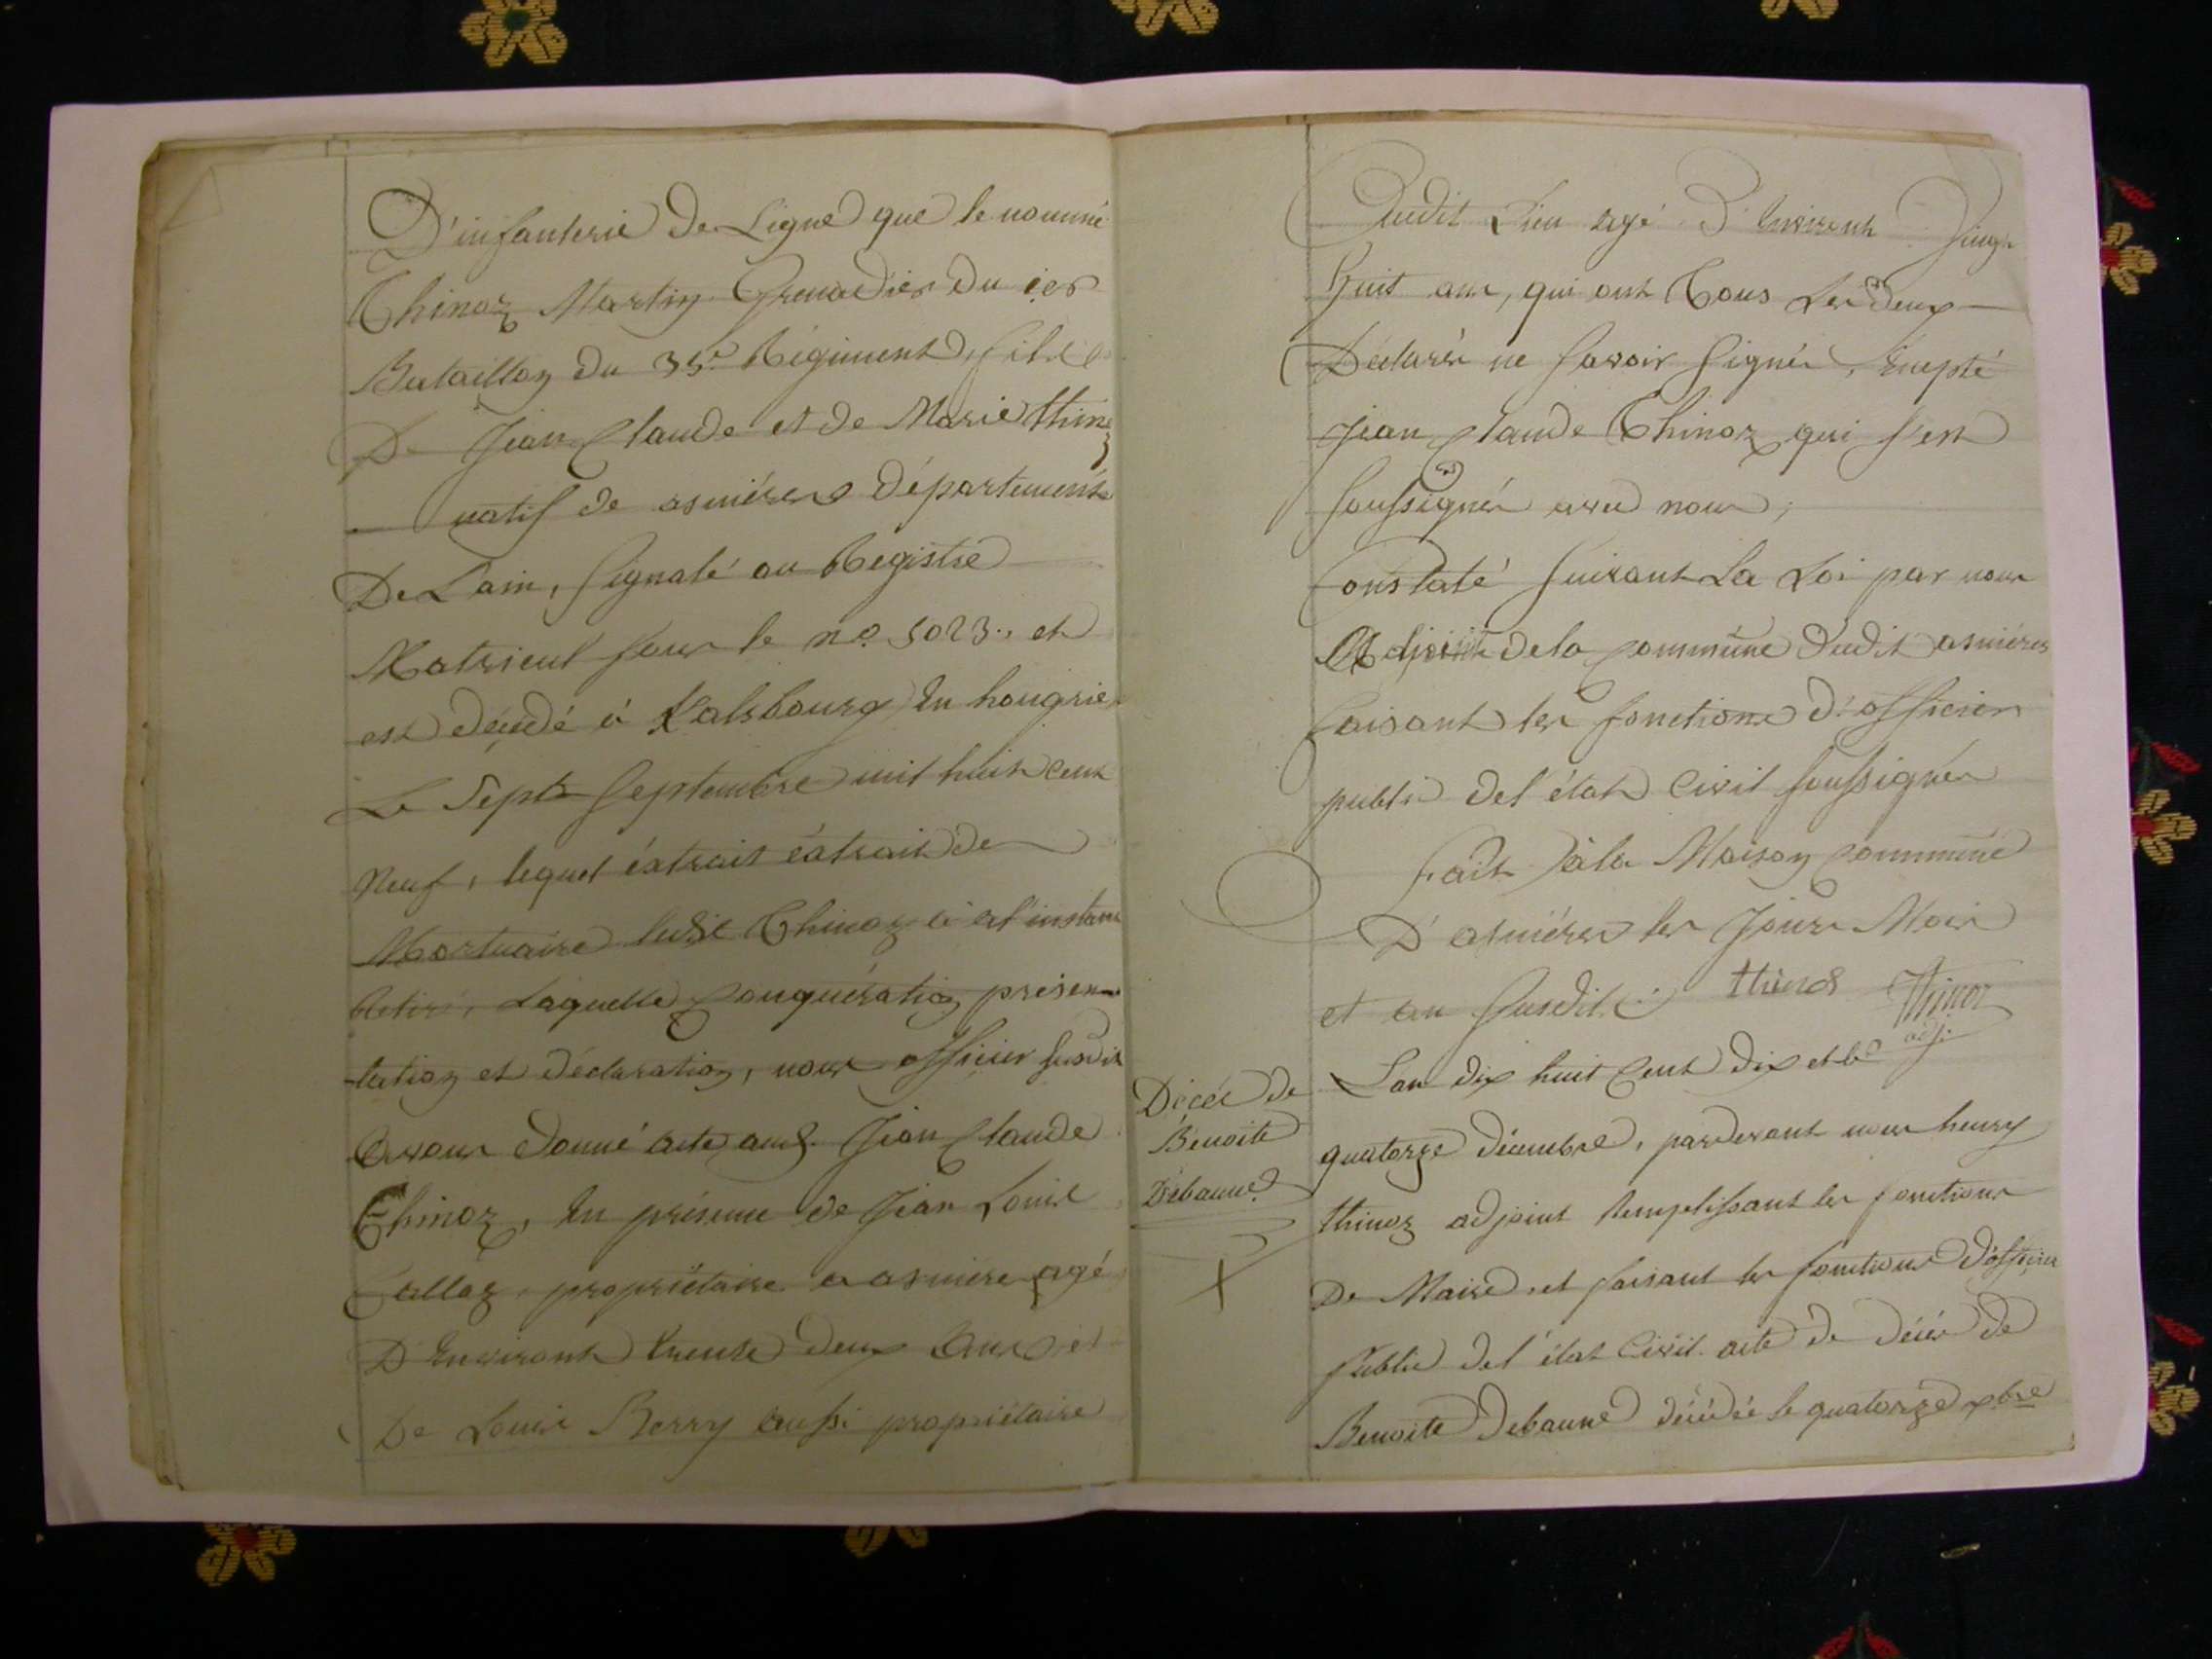 D'infanterie De Ligne que le nommé
Thinoz Martin Grenadier Du ier
Bataillon du 35e Régiment, fils
De Jean Claude et de Marie thinoz
natif de asniéres Département
De Lain, Signalé au Registre
Matricul sous le no. 5023. et
est décédé à Kalsbourg En hongrie
Le Sept Septembre mil huit cent
Neuf, lequel éxtrait éxtrait de
Mortuaire ledit Thinoz à à l'instant
Retiré, Laquelle Conquération présen-
tation et déclaration, nous officier susdit
avons donné acte aud. Jean Claude
Thinoz, En présence de Jean Louis
Calloz, propriétaire a asniére agé
D'Environt trente deux ans et
De Louis Berry aussi propriétaire
Dudit Lieu agé D'Environt Vingt
huit ans, qui ont Tous Les deux
Déclarés ne savoir signés, Exepté
Jean Claude Thinoz qui s'est
soussignés avec nous;
Constaté suivant La Loi par nous
Adjoint de la Commune dudit asniéres
faisant les fonctions d'officier
public del'état Civil soussignés
fait à la Maison Commune
D'asniéres les Jours Mois
et an susdit. thinoz Thinoz
adj.
Décés de
Benoite
Debaune
L'an dix huit Cent dix et le
quatorze décembre, pardevant nous henry
thinoz adjoint Remplissant les fonctions
De Maire et faisant les fonctions d'officier
Public del'état Civil. acte de décés de
Benoite Debaune décédée le quatorze xbre